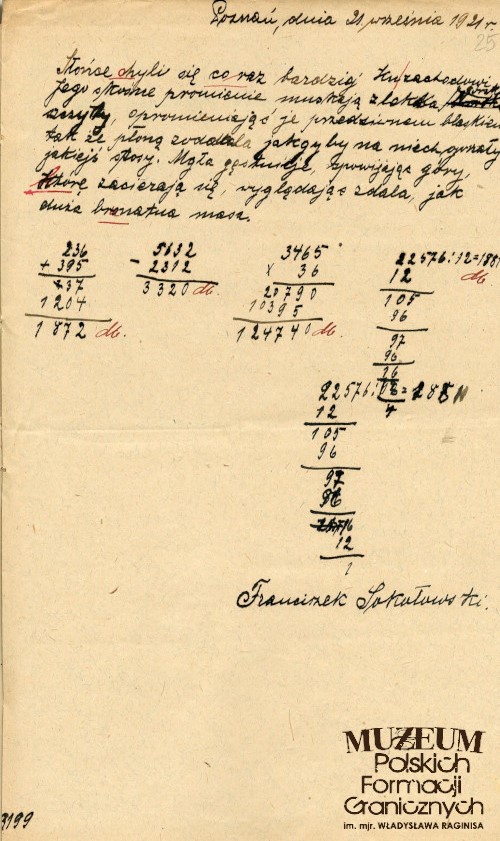 Poznań, dnia 21 września 1921 r.
25
Słońce chyli się co raz bardziej ku zachodowi
Jego skośne promienie muskają złote
szczyty, opromieniając je przedziwnem blaskiem
tak że płoną zoddala jakgdyby na nich gorzały
jakiejś stosy. Mgła gęstnieje, spowijając góry,
które zacierają się, wyglądając zdala, jak
duża bronatna masa.
236
+ 395
837
1204
1872 db.
5632
- 2312
3320 db.
3465
x 36
20790
10395
124740 db.
22576:12=1881
12 db.
105
96
97
96
16
12
4
22576:12=1881
12
105
96
97
96
16
12
1
Franciszek Sokołowski.
MUZEUM
Polskich
Formacji
Granicznych
im. mjr. WŁADYSŁAWA RAGINISA
3199